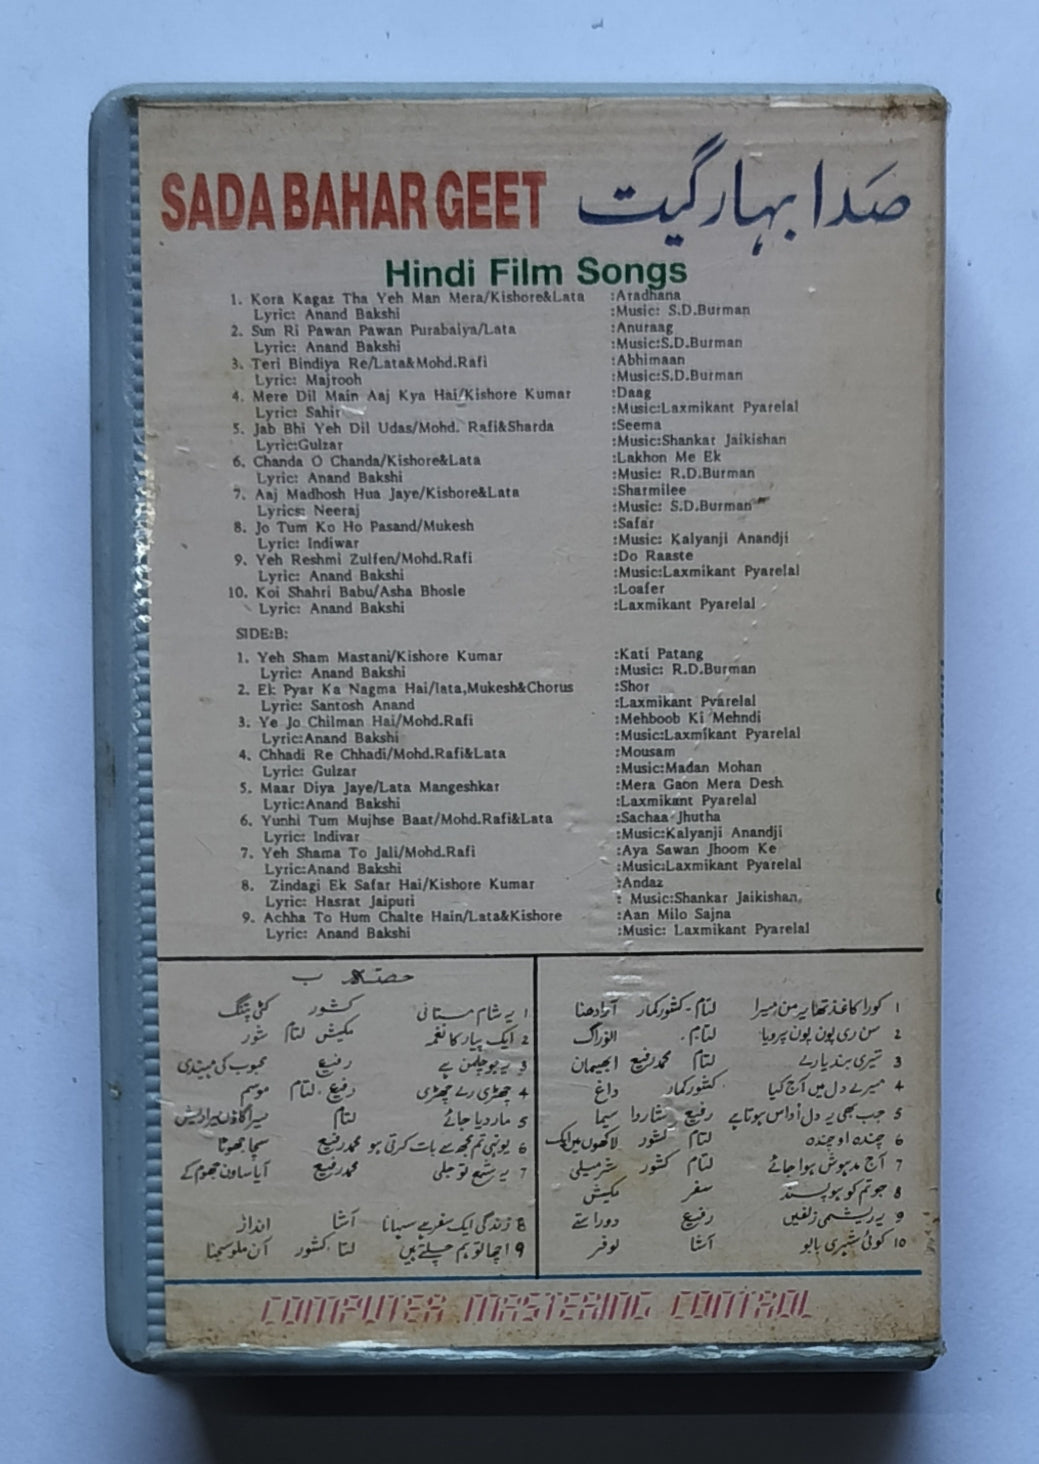 SADA BAHAR GEET صدا بہار گیت
Hindi Film Songs
1. Kora Kagaz Tha Yeh Man Mera/Kishore&Lata :Aradhana
Lyric: Anand Bakshi :Music: S.D.Burman
2. Sun Ri Pawan Pawan Purabaiya/Lata :Anuraag
Lyric: Anand Bakshi :Music:S.D.Burman
3. Teri Bindiya Re/Lata&Mohd.Rafi :Abhimaan
Lyric: Majrooh :Music:S.D.Burman
4. Mere Dil Main Aaj Kya Hai/Kishore Kumar :Daag
Lyric: Sahir :Music:Laxmikant Pyarelal
5. Jab Bhi Yeh Dil Udas/Mohd. Rafi&Sharda :Seema
Lyric:Gulzar :Music:Shankar Jaikishan
6. Chanda O Chanda/Kishore&Lata :Lakhon Me Ek
Lyric: Anand Bakshi :Music: R.D.Burman
7. Aaj Madhosh Hua Jaye/Kishore&Lata :Sharmilee
Lyrics: Neeraj :Music: S.D.Burman
8. Jo Tum Ko Ho Pasand/Mukesh :Safar
Lyric: Indiwar :Music: Kalyanji Anandji
9. Yeh Reshmi Zulfen/Mohd.Rafi :Do Raaste
Lyric: Anand Bakshi :Music:Laxmikant Pyarelal
10. Koi Shahri Babu/Asha Bhosle :Loafer
Lyric: Anand Bakshi :Laxmikant Pyarelal
SIDE:B:
1. Yeh Sham Mastani/Kishore Kumar :Kati Patang
Lyric: Anand Bakshi :Music: R.D.Burman
2. Ek Pyar Ka Nagma Hai/lata,Mukesh&Chorus :Shor
Lyric: Santosh Anand :Laxmikant Pyarelal
3. Ye Jo Chilman Hai/Mohd.Rafi :Mehboob Ki Mehndi
Lyric:Anand Bakshi :Music:Laxmikant Pyarelal
4. Chhadi Re Chhadi/Mohd.Rafi&Lata :Mousam
Lyric: Gulzar :Music:Madan Mohan
5. Maar Diya Jaye/Lata Mangeshkar :Mera Gaon Mera Desh
Lyric:Anand Bakshi :Laxmikant Pyarelal
6. Yunhi Tum Mujhse Baat/Mohd.Rafi&Lata :Sachaa Jhutha
Lyric: Indivar :Music:Kalyanji Anandji
7. Yeh Shama To Jali/Mohd.Rafi :Aya Sawan Jhoom Ke
Lyric:Anand Bakshi :Music:Laxmikant Pyarelal
8. Zindagi Ek Safar Hai/Kishore Kumar :Andaz
Lyric: Hasrat Jaipuri : Music:Shankar Jaikishan
9. Achha To Hum Chalte Hain/Lata&Kishore :Aan Milo Sajna
Lyric: Anand Bakshi :Music: Laxmikant Pyarelal
1 کورا کاغذ تھا یہ من میرا لتا کشور کمار آرادھنا
2 سن ری پون پون پرویا لتا
3 تیری بندیا رے لتا محمد رفیع ابھیمان
4 میرے دل میں آج کیا کشور کمار داغ
5 جب بھی یہ دل اُداس ہوتا ہے رفیع شاردا سیما
6 چندہ او چندہ لتا کشور لاکھوں میں ایک
7 آج مدہوش ہوا جائے لتا کشور شرمیلی
8 جو تم کو ہو پسند سفر مکیش
9 یہ ریشمی زلفیں رفیع دو راستے
10 کوئی شہری بابو آشا لوفر
حصتہ ب
1 یہ شام مستانی کشور کٹی پتنگ
2 ایک پیار کا نغمہ مکیش لتا شور
3 یہ جو چلمن ہے رفیع محبوب کی مہندی
4 چھڑی رے چھڑی رفیع لتا موسم
5 مار دیا جائے لتا میرا گاؤں میرا دیش
6 یونہی تم مجھ سے بات کرتی ہو محمد رفیع سچا جھوٹا
7 یہ شمع تو جلی محمد رفیع آیا ساون جھوم کے
8 زندگی ایک سفر ہے سہانا آشا انداز
9 اچھا تو ہم چلتے ہیں لتا کشور آن ملو سجنا
COMPUTER MASTERING CONTROL